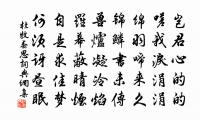 豈君心的的
嗟我淚涓涓
綿羽啼來久
錦鱗書未傳
獸爐凝冷焰
羅幕蔽晴煙
自是求佳夢
何須訝晝眠
杜牧春思詞典網集